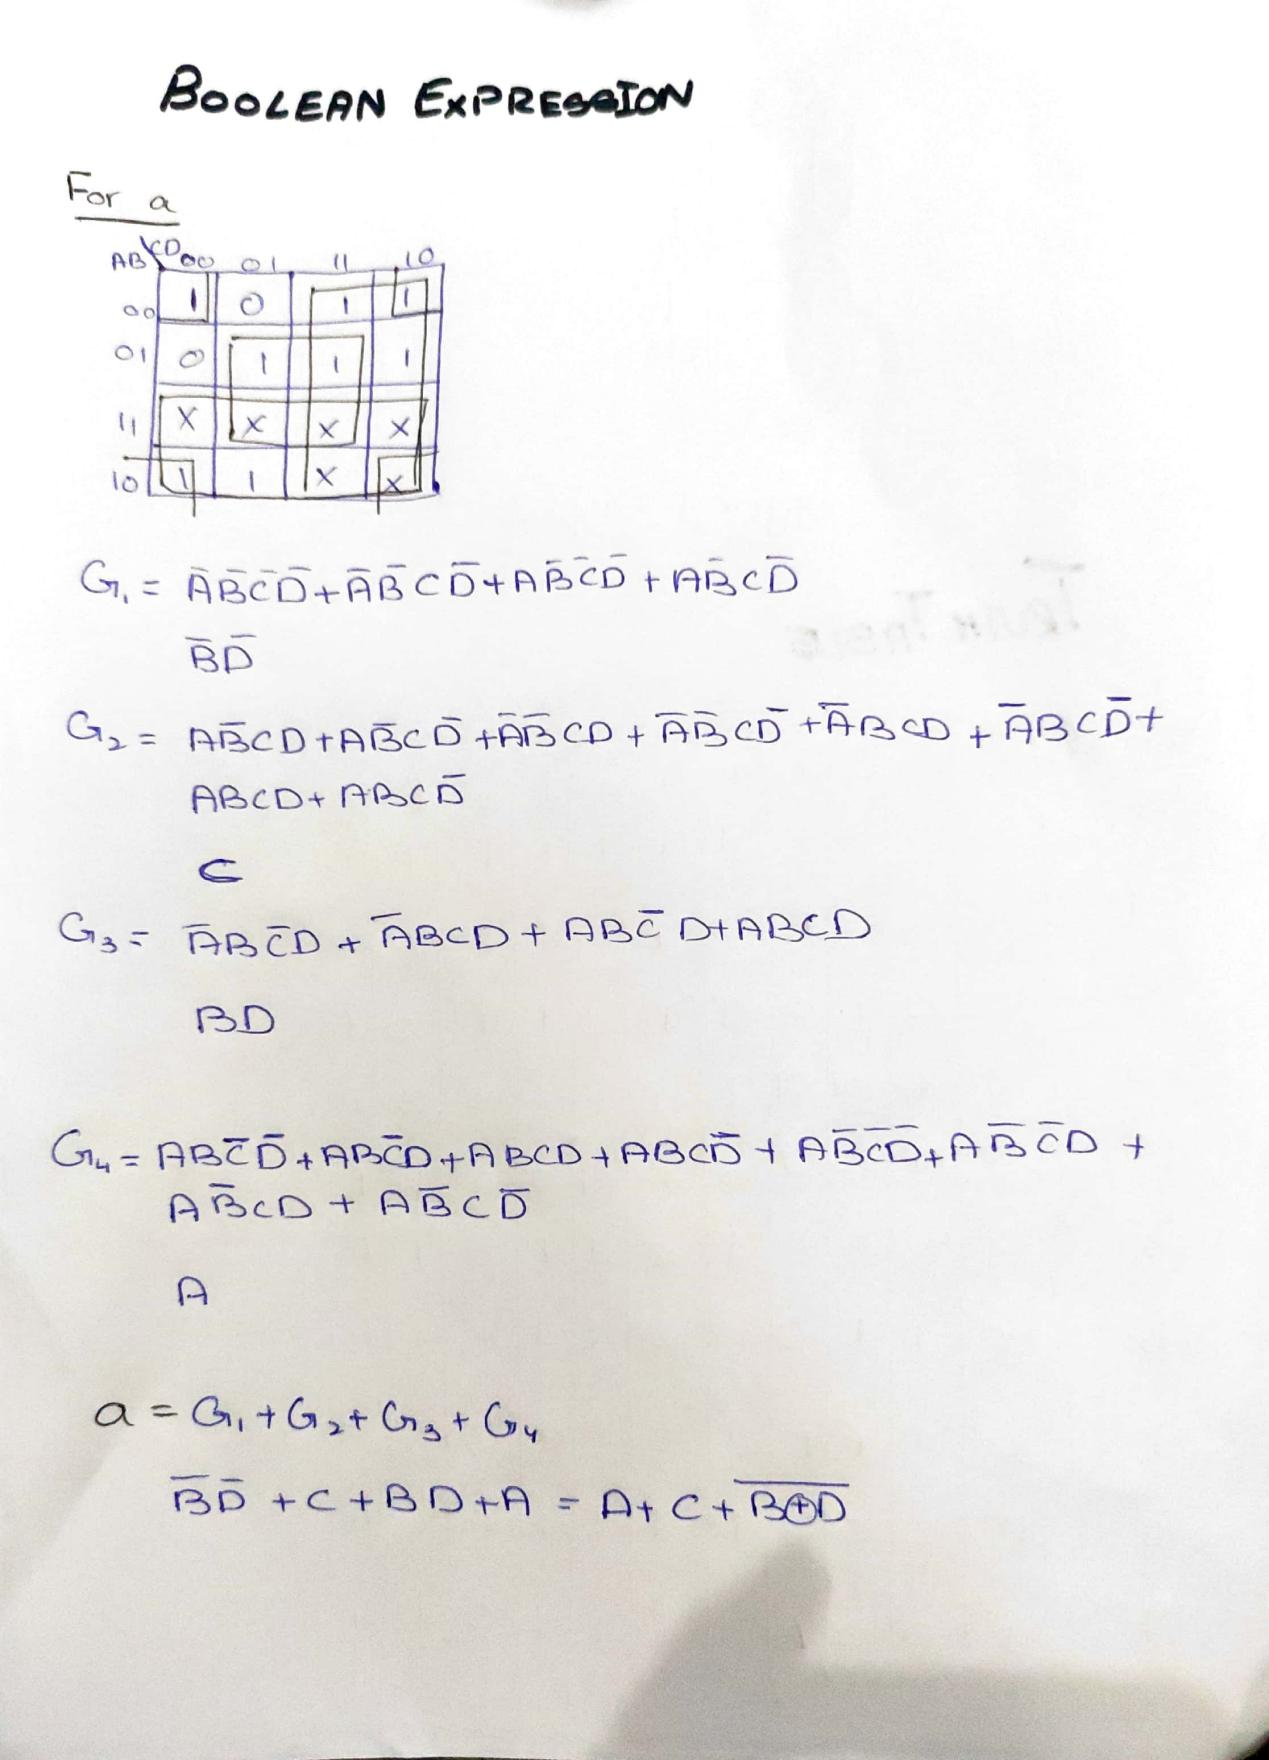 BOOLEAN EXPRESSION
For a
AB\CD 00 01 11 10
00 1 0 1 1
01 0 1 1 1
11 X X X X
10 1 1 X X
G₁ = A̅B̅C̅D̅ + A̅B̅CD̅ + AB̅C̅D̅ + AB̅CD̅
B̅D̅
G₂ = AB̅CD + AB̅CD̅ + A̅B̅CD + A̅B̅CD̅ + A̅BCD + A̅BCD̅ +
ABCD + ABCD̅
C
G₃ = A̅BC̅D + A̅BCD + ABC̅D + ABCD
BD
G₄ = ABC̅D̅ + ABC̅D + ABCD + ABCD̅ + AB̅C̅D̅ + AB̅C̅D +
AB̅CD + AB̅CD̅
A
a = G₁ + G₂ + G₃ + G₄
B̅D̅ + C + BD + A = A + C + B̅⊕̅D̅